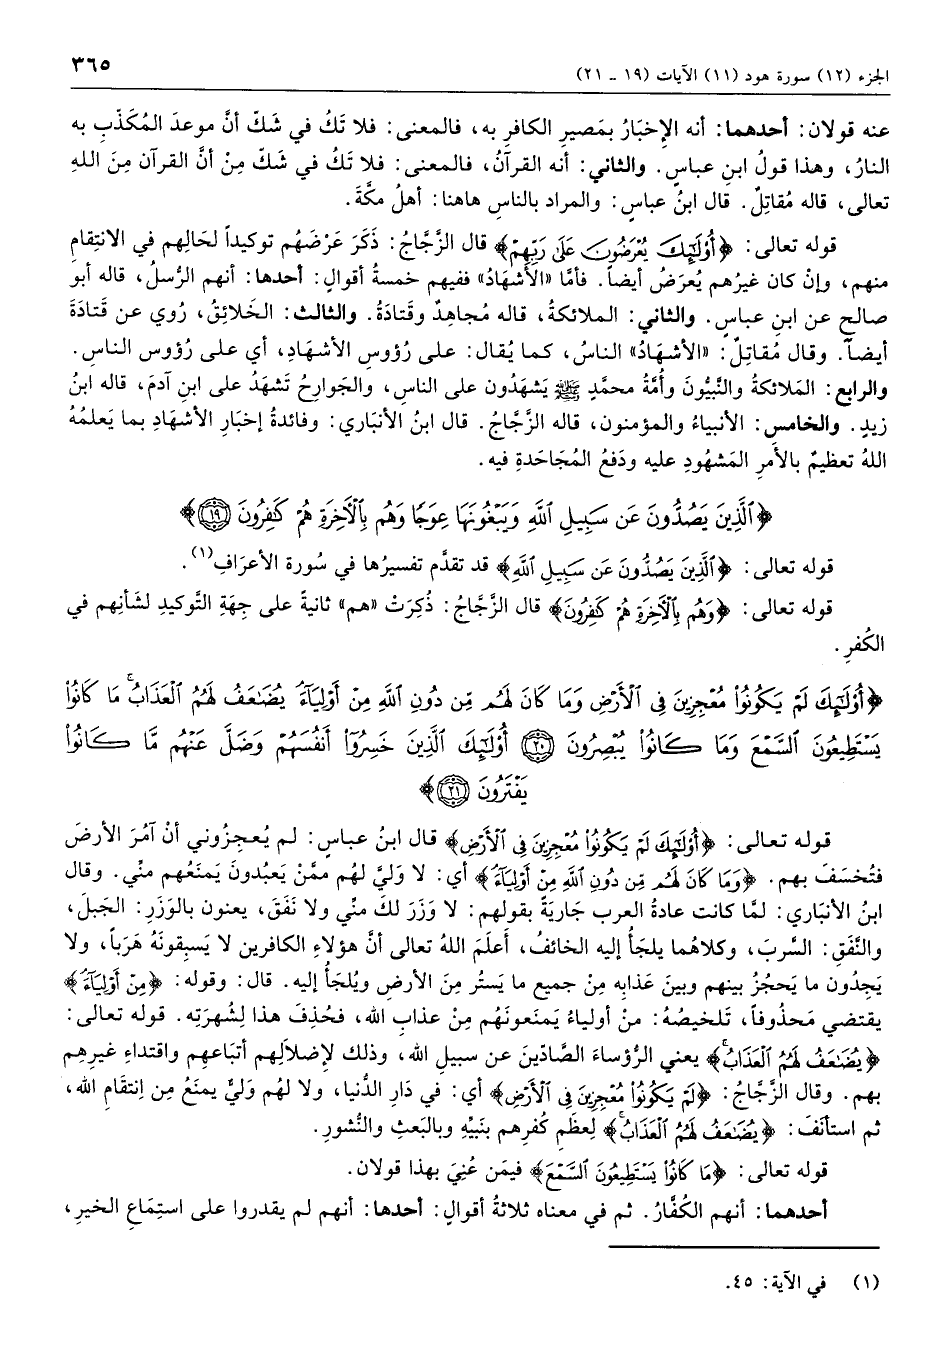 الجزء (١٢) سورة هود (١١) الآيات (١٩ ـ ٢١)
٣٦٥
عنه قولان: أحدهما: أنه الإخبارُ بمَصيرِ الكافرِ به، فالمعنى: فلا تَكُ في شَكّ أنَّ موعدَ المُكَذّبِ به
النارُ، وهذا قولُ ابنِ عباسٍ. والثاني: أنه القرآنُ، فالمعنى: فلا تَكُ في شَكّ مِنْ أنَّ القرآن مِنَ اللهِ
تعالى، قاله مُقاتلٌ. قال ابنُ عباسٍ: والمراد بالناسِ هاهنا: أهلُ مكَّةَ.
قوله تعالى: ﴿أُوْلَٰٓئِكَ يُعْرَضُونَ عَلَىٰ رَبِّهِمْ﴾ قال الزَّجّاجُ: ذَكَرَ عَرْضَهُم توكيداً لحَالِهم في الانتِقامِ
منهم، وإنْ كان غيرُهم يُعرَضُ أيضاً. فأمَّا «الأشْهَادُ» ففيهم خمسةُ أقوالٍ: أحدها: أنهم الرُّسلُ، قاله أبو
صالحٍ عن ابنِ عباسٍ. والثاني: الملائكةُ، قاله مُجاهِدٌ وقَتادَةُ. والثالث: الخَلائِقُ، رُوي عن قَتادَةَ
أيضاً. وقال مُقاتلٌ: «الأشْهَادُ» الناسُ، كما يُقال: على رُؤوسِ الأشهَادِ، أي على رُؤوس الناسِ.
والرابع: المَلائكةُ والنَّبيُّونَ وأُمَّةُ محمَّدٍ ﷺ يَشهَدُون على الناسِ، والجَوارحُ تَشهَدُ على ابنِ آدمَ، قاله ابنُ
زيدٍ. والخامس: الأنبياءُ والمؤمنون، قاله الزَّجّاجُ. قال ابنُ الأنباري: وفائدةُ إخبَارِ الأشهَادِ بما يَعلمُهُ
اللهُ تعظيمٌ بالأمرِ المَشهُودِ عليه ودَفعُ المُجَاحَدةِ فيه.
﴿ٱلَّذِينَ يَصُدُّونَ عَن سَبِيلِ ٱللَّهِ وَيَبْغُونَهَا عِوَجًا وَهُم بِٱلْأٓخِرَةِ هُمْ كَٰفِرُونَ ١٩﴾
قوله تعالى: ﴿ٱلَّذِينَ يَصُدُّونَ عَن سَبِيلِ ٱللَّهِ﴾ قد تقدَّم تفسيرُها في سُورة الأعرَافِ(١).
قوله تعالى: ﴿وَهُم بِٱلْأٓخِرَةِ هُمْ كَٰفِرُونَ﴾ قال الزَّجّاجُ: ذُكِرَتْ «هم» ثانيةً على جِهَةِ التَّوكيدِ لشَأنِهم في
الكُفرِ.
﴿أُوْلَٰٓئِكَ لَمْ يَكُونُوا۟ مُعْجِزِينَ فِى ٱلْأَرْضِ وَمَا كَانَ لَهُم مِّن دُونِ ٱللَّهِ مِنْ أَوْلِيَآءَ يُضَٰعَفُ لَهُمُ ٱلْعَذَابُ مَا كَانُوا۟
يَسْتَطِيعُونَ ٱلسَّمْعَ وَمَا كَانُوا۟ يُبْصِرُونَ ٢٠ أُوْلَٰٓئِكَ ٱلَّذِينَ خَسِرُوٓا۟ أَنفُسَهُمْ وَضَلَّ عَنْهُم مَّا كَانُوا۟
يَفْتَرُونَ ٢١﴾
قوله تعالى: ﴿أُوْلَٰٓئِكَ لَمْ يَكُونُوا۟ مُعْجِزِينَ فِى ٱلْأَرْضِ﴾ قال ابنُ عباس: لم يُعجِزُوني أنْ آمُرَ الأرضَ
فتُخسَفَ بهم. ﴿وَمَا كَانَ لَهُم مِّن دُونِ ٱللَّهِ مِنْ أَوْلِيَآءَ﴾ أي: لا وَليَّ لهُم ممَّنْ يَعبُدونَ يَمنَعُهم منِّي. وقال
ابنُ الأنباري: لمَّا كانت عادةُ العرب جَاريَةً بقولهم: لا وَزَرَ لكَ منِّي ولا نَفَقَ، يعنون بالوَزَرِ: الجَبلَ،
والنَّفَقِ: السَّربَ، وكلاهُما يلجَأُ إليه الخائفُ، أَعلَمَ اللهُ تعالى أنَّ هؤلاءِ الكافرين لا يَسبِقونَهُ هَرَباً، ولا
يَجِدُون ما يَحجُزُ بينهم وبينَ عَذابِه مِنْ جميع ما يَستُر مِنَ الأرض ويُلجَأُ إليه. قال: وقوله: ﴿مِنْ أَوْلِيَآءَ﴾
يقتضي مَحذُوفاً، تَلخيصُهُ: منْ أولياءُ يَمنَعُونَهُم مِنْ عذابِ الله، فحُذِفَ هذا لِشُهرَتِه. قوله تعالى:
﴿يُضَٰعَفُ لَهُمُ ٱلْعَذَابُ﴾ يعني الرُّؤساءَ الصَّادّينَ عن سبيلِ الله، وذلك لإِضلاَلِهم أتبَاعِهم واقتداءِ غيرِهم
بهم. وقال الزَّجَّاجُ: ﴿لَمْ يَكُونُوا۟ مُعْجِزِينَ فِى ٱلْأَرْضِ﴾ أي: في دَارِ الدُّنيا، ولا لهُم وَليٌّ يمنَعُ مِن اِنتقَامِ الله،
ثم استأنَفَ: ﴿يُضَٰعَفُ لَهُمُ ٱلْعَذَابُ﴾ لِعظَمِ كُفرِهم بنَبيِّهِ وبالبَعثِ والنُّشورِ.
قوله تعالى: ﴿مَا كَانُوا۟ يَسْتَطِيعُونَ ٱلسَّمْعَ﴾ فيمَن عُنِيَ بهذا قولان.
أحدهما: أنهم الكُفَّارُ. ثم في معناه ثلاثةُ أقوالٍ: أحدها: أنهم لم يقدروا على استِمَاعِ الخيرِ،
(١) في الآية: ٤٥.